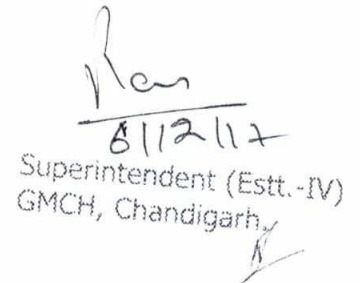 6/12/17
Superintendent (Estt.-IV)
GMCH, Chandigarh.